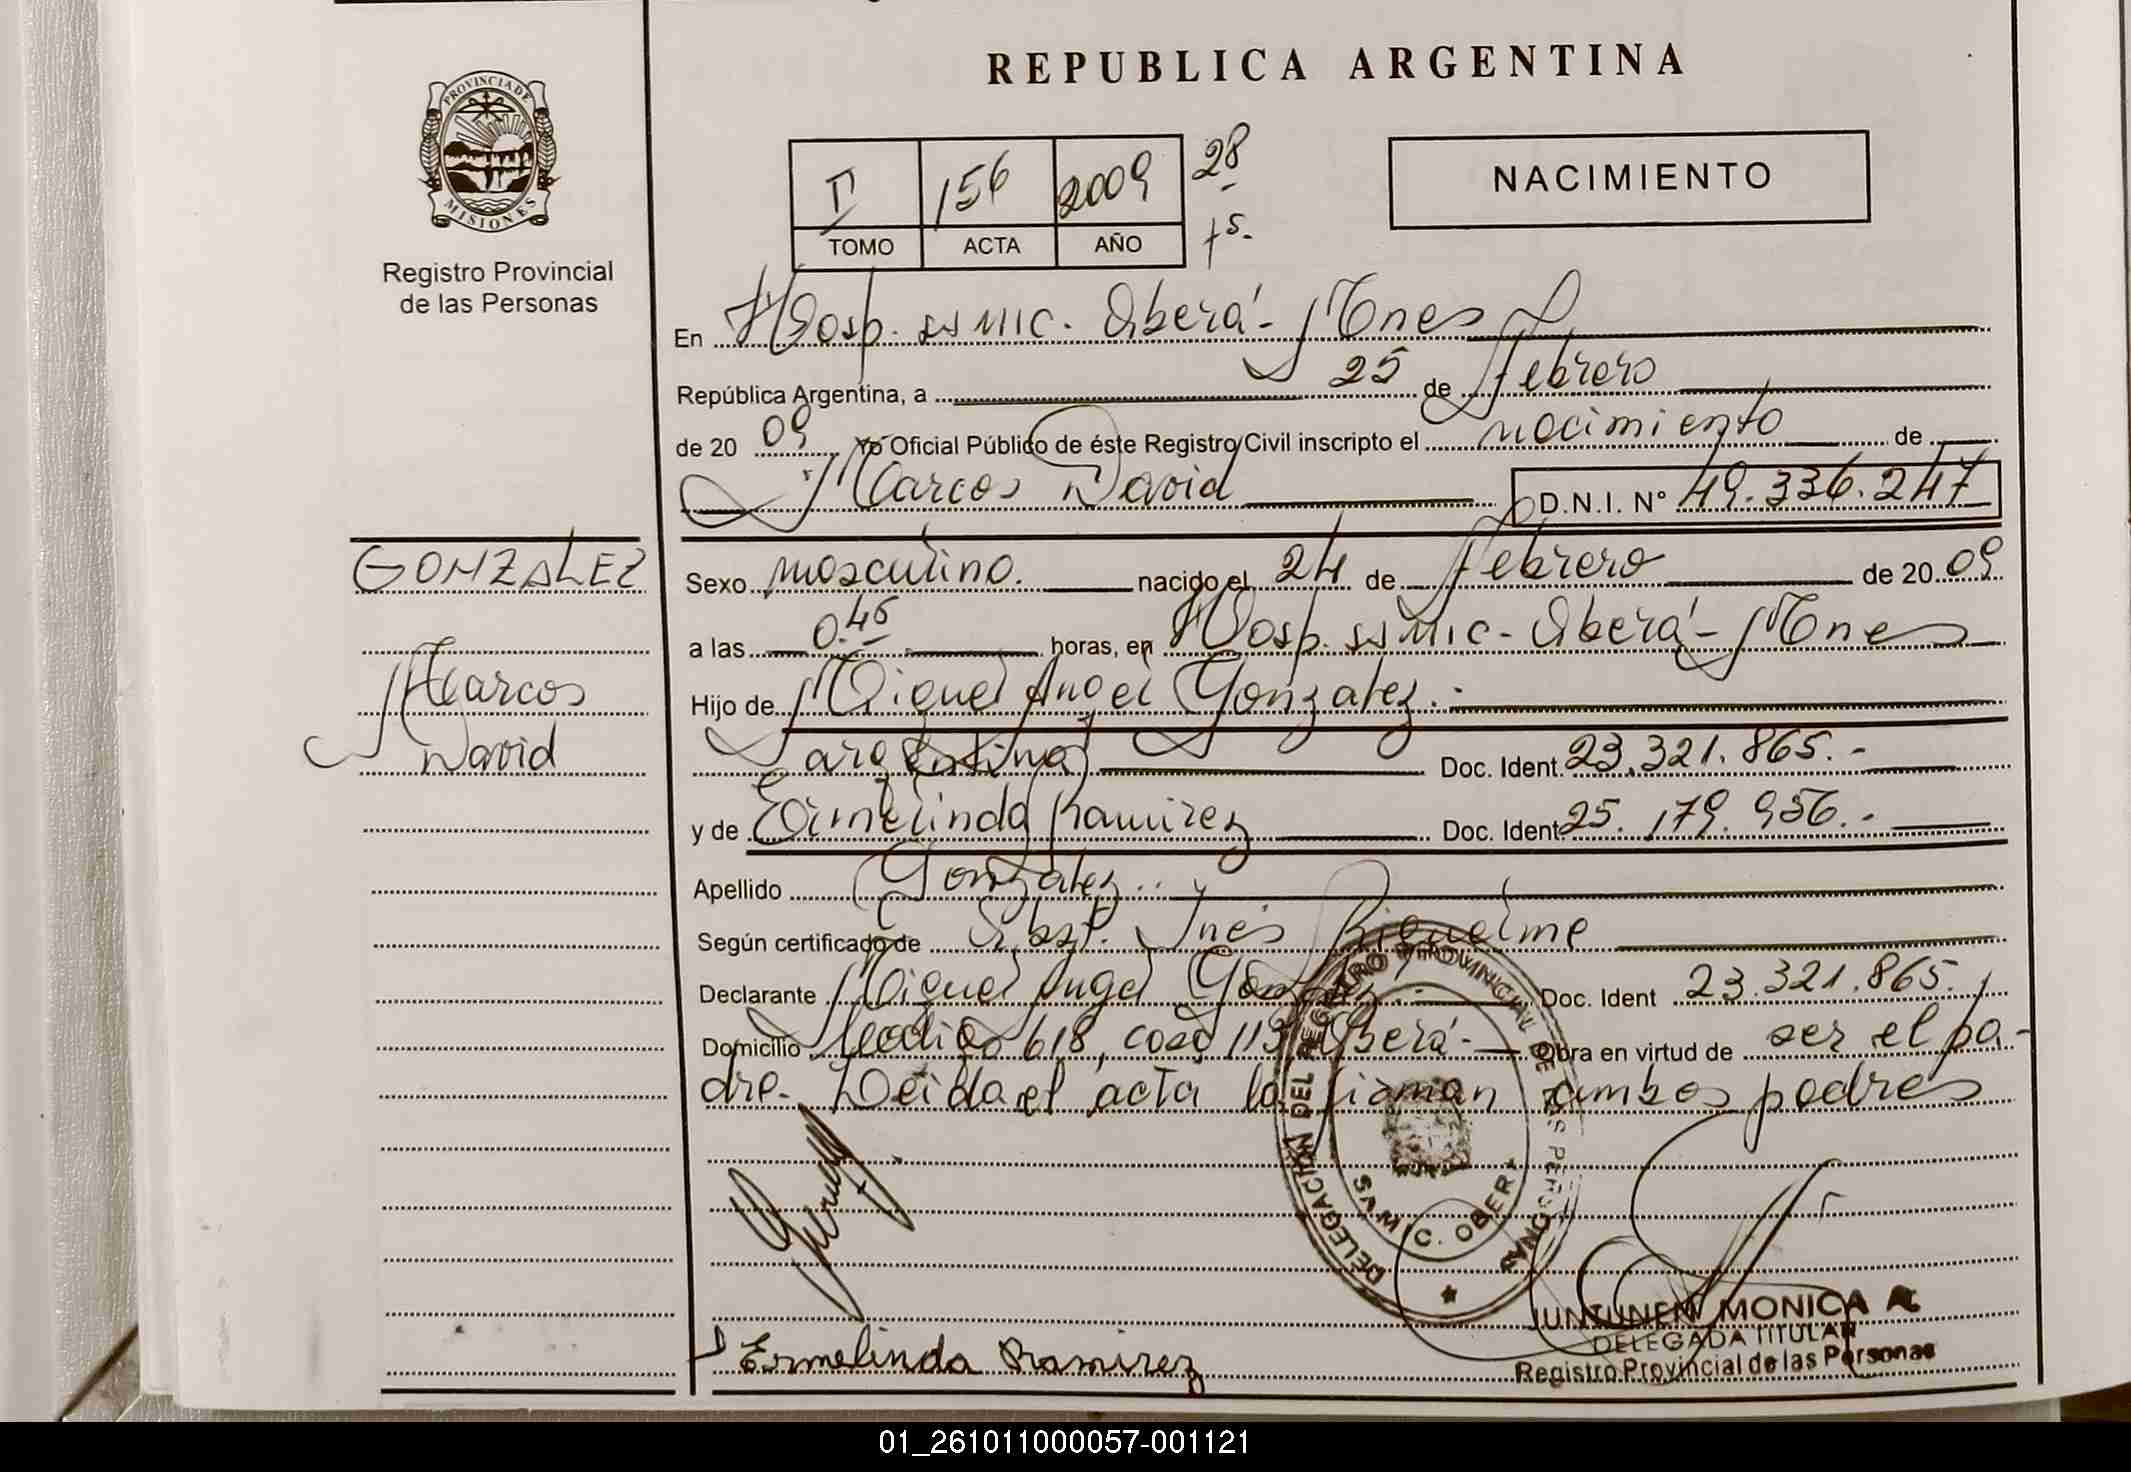 REPUBLICA ARGENTINA
PROVINCIA DE MISIONES
Registro Provincial
de las Personas
II 156 2009 28
TOMO ACTA AÑO
NACIMIENTO
En Hosp. SSMIC. Oberá - Mnes
República Argentina, a 25 de Febrero
de 2009 Yo Oficial Público de éste Registro Civil inscripto el nacimiento de
Marcos David D.N.I. Nº 49.336.247
GONZALEZ
Marcos
David
Sexo masculino. nacido el 24 de Febrero de 2009
a las 0.45 horas, en Hosp. SSMIC - Oberá - Mnes
Hijo de Miguel Angel Gonzalez.
argentina Doc. Ident. 23.321.865.-
y de Ermelinda Ramirez Doc. Ident 25.179.956.-
Apellido Gonzalez..
Según certificado de Obst. Inés Riquelme
Declarante Miguel Angel Gonzalez Doc. Ident 23.321.865.
Domicilio 618, casa 113 Oberá - Obra en virtud de ser el pa-
dre. Leida el acta la firman ambos padres
DELEGACIÓN DEL REGISTRO PROVINCIAL DE LAS PERSONAS
Ermelinda Ramirez
JUNTUNEN MONICA
DELEGADA TITULAR
Registro Provincial de las Personas
01_261011000057-001121